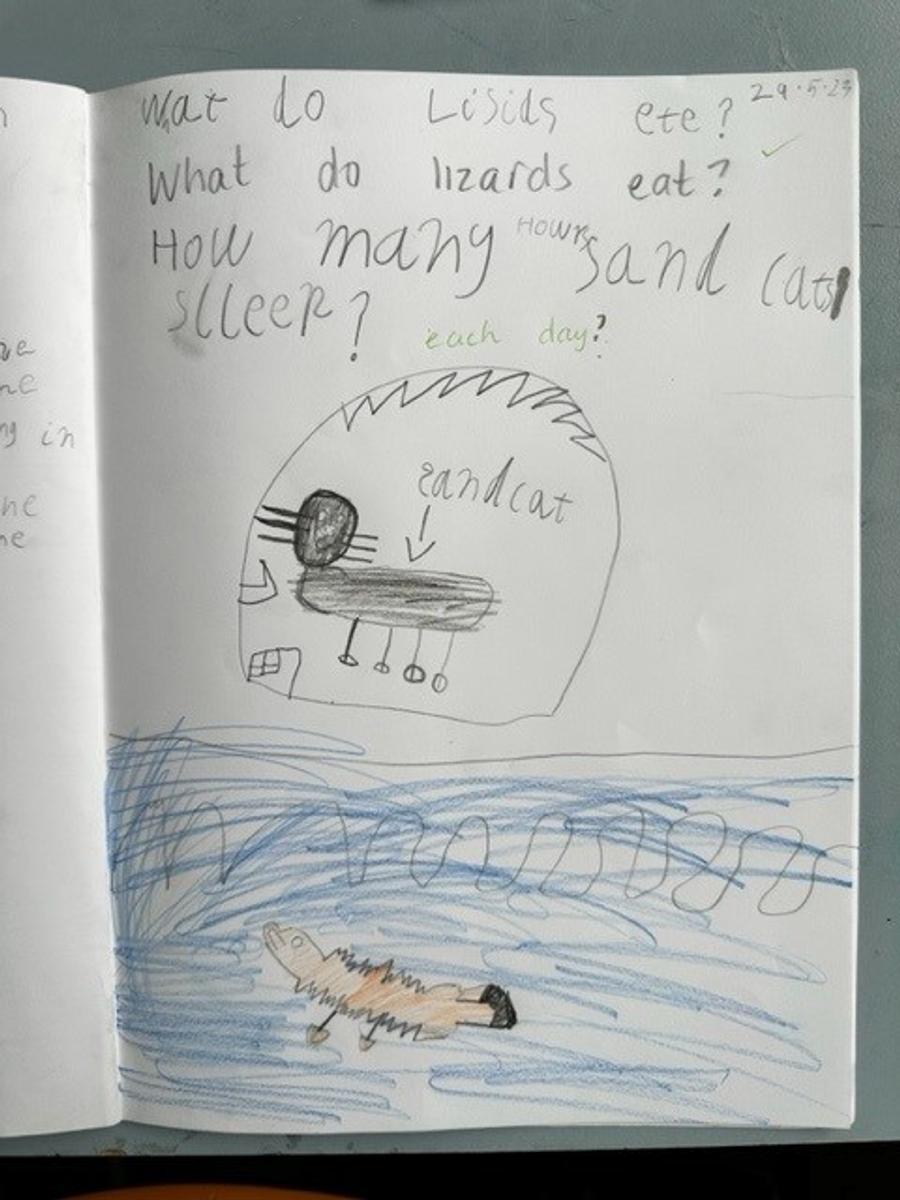 Wat do Lisids ete? 29.5.23
What do lizards eat?
How many Hours sand cats
slleep? each day?
sandcat
n
ne
ng in
ne